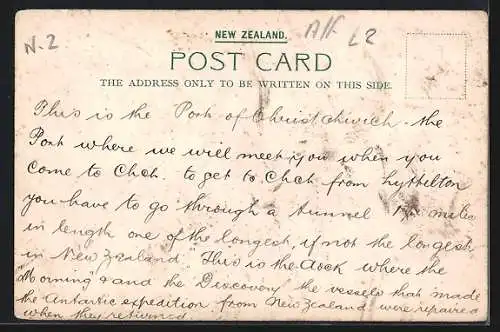 N-2
L2
NEW ZEALAND.
POST CARD
THE ADDRESS ONLY TO BE WRITTEN ON THIS SIDE.
This is the Port of Christchurch - the
Port where we will meet you when you
come to Chch. to get to Chch from Lyttelton
you have to go through a tunnel miles
in length one of the longest, if not the longest
in New Zealand. This is the dock where the
"Morning" and the Discovery the vessels that made
the Antarctic expedition from New Zealand were repaired
when they returned.